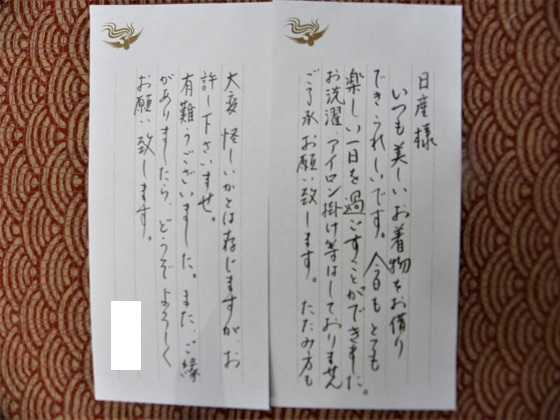 日産様
いつも美しいお着物をお借り
できうれしいです。今日もとても
楽しい一日を過ごすことができました。
お洗濯、アイロン掛け等はしておりません
ご了承お願い致します。たたみ方も
大変怪しいかとは存じますが、お
許し下さいませ。
有難うございました。また、ご縁
がありましたら、どうぞよろしく
お願い致します。